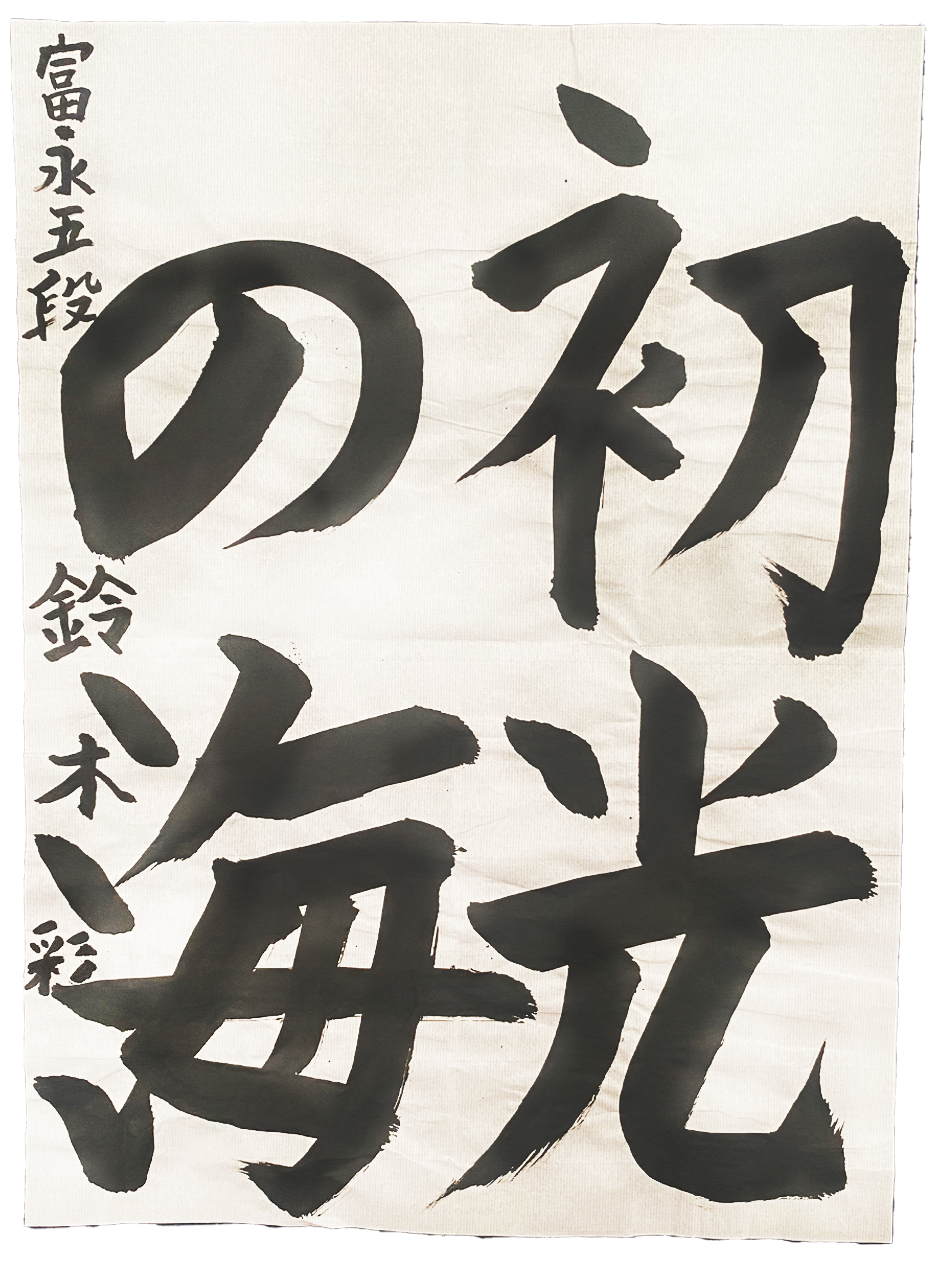 初光
の海
富永五段 鈴木彩